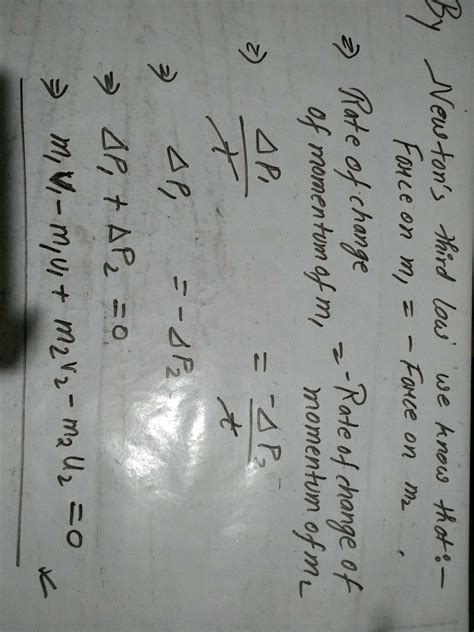 By Newton's third law we know that:-
Force on m₁ = - Force on m₂.
⇒ Rate of change of momentum of m₁ = - Rate of change of momentum of m₂
⇒ ΔP₁/t = -ΔP₂/t
⇒ ΔP₁ = -ΔP₂
⇒ ΔP₁ + ΔP₂ = 0
⇒ m₁v₁ - m₁u₁ + m₂v₂ - m₂u₂ = 0